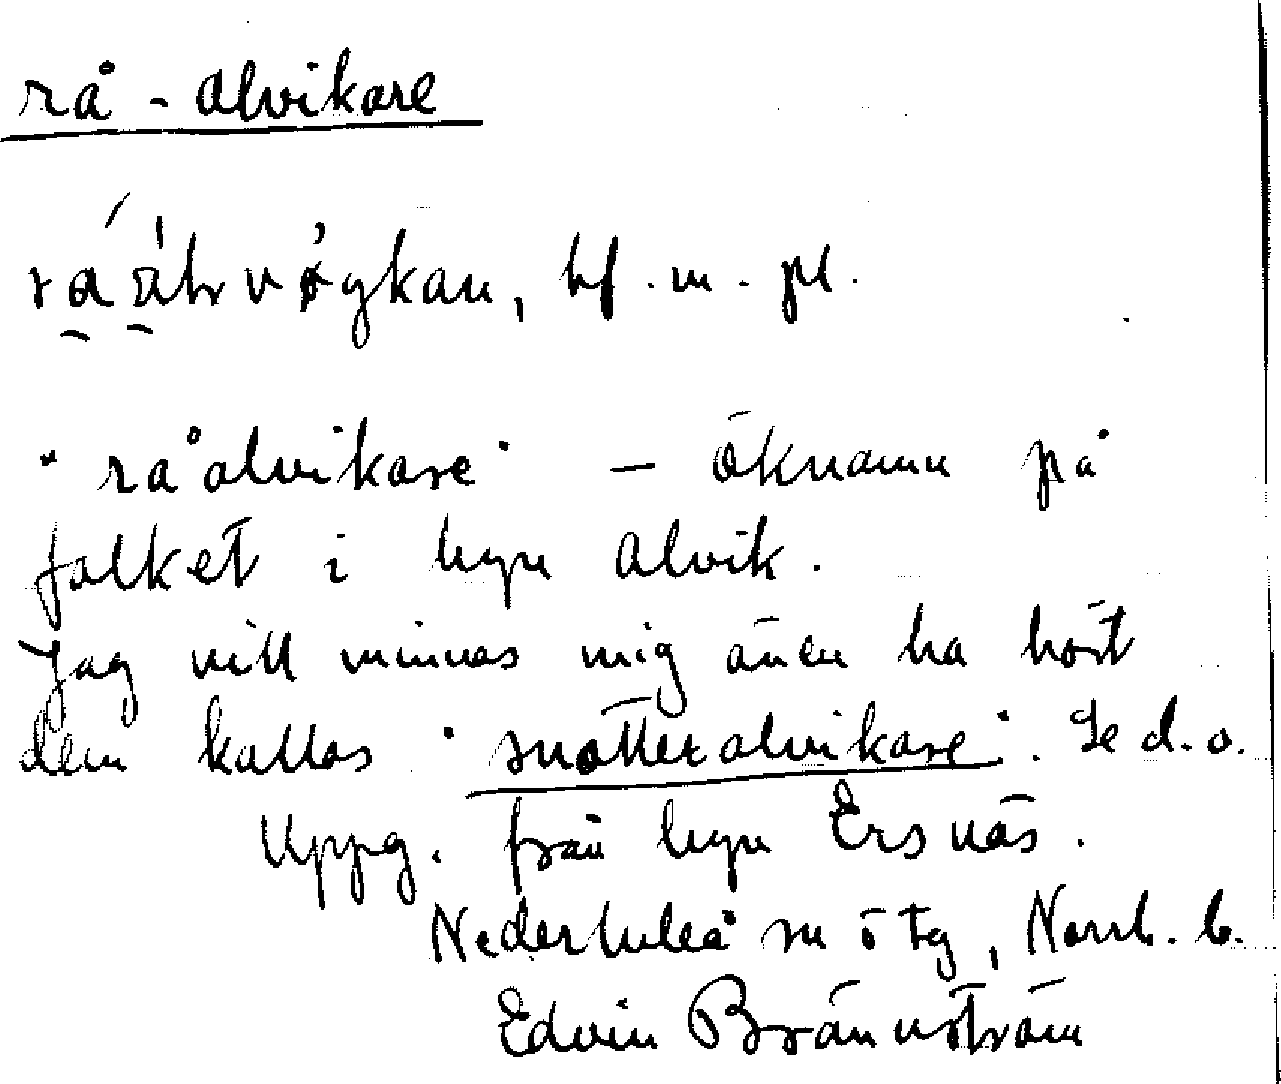 rå-alvikare
bf. m. pl.
"råalvikare" – öknamn på
folket i byn Alvik.
Jag vill minnas mig även ha hört
dem kallas "snötteralvikare". Se d.o.
Uppg. från byn Ersnäs.
Nederluleå sn ötg, Norrb. b.
Edvin Brännström